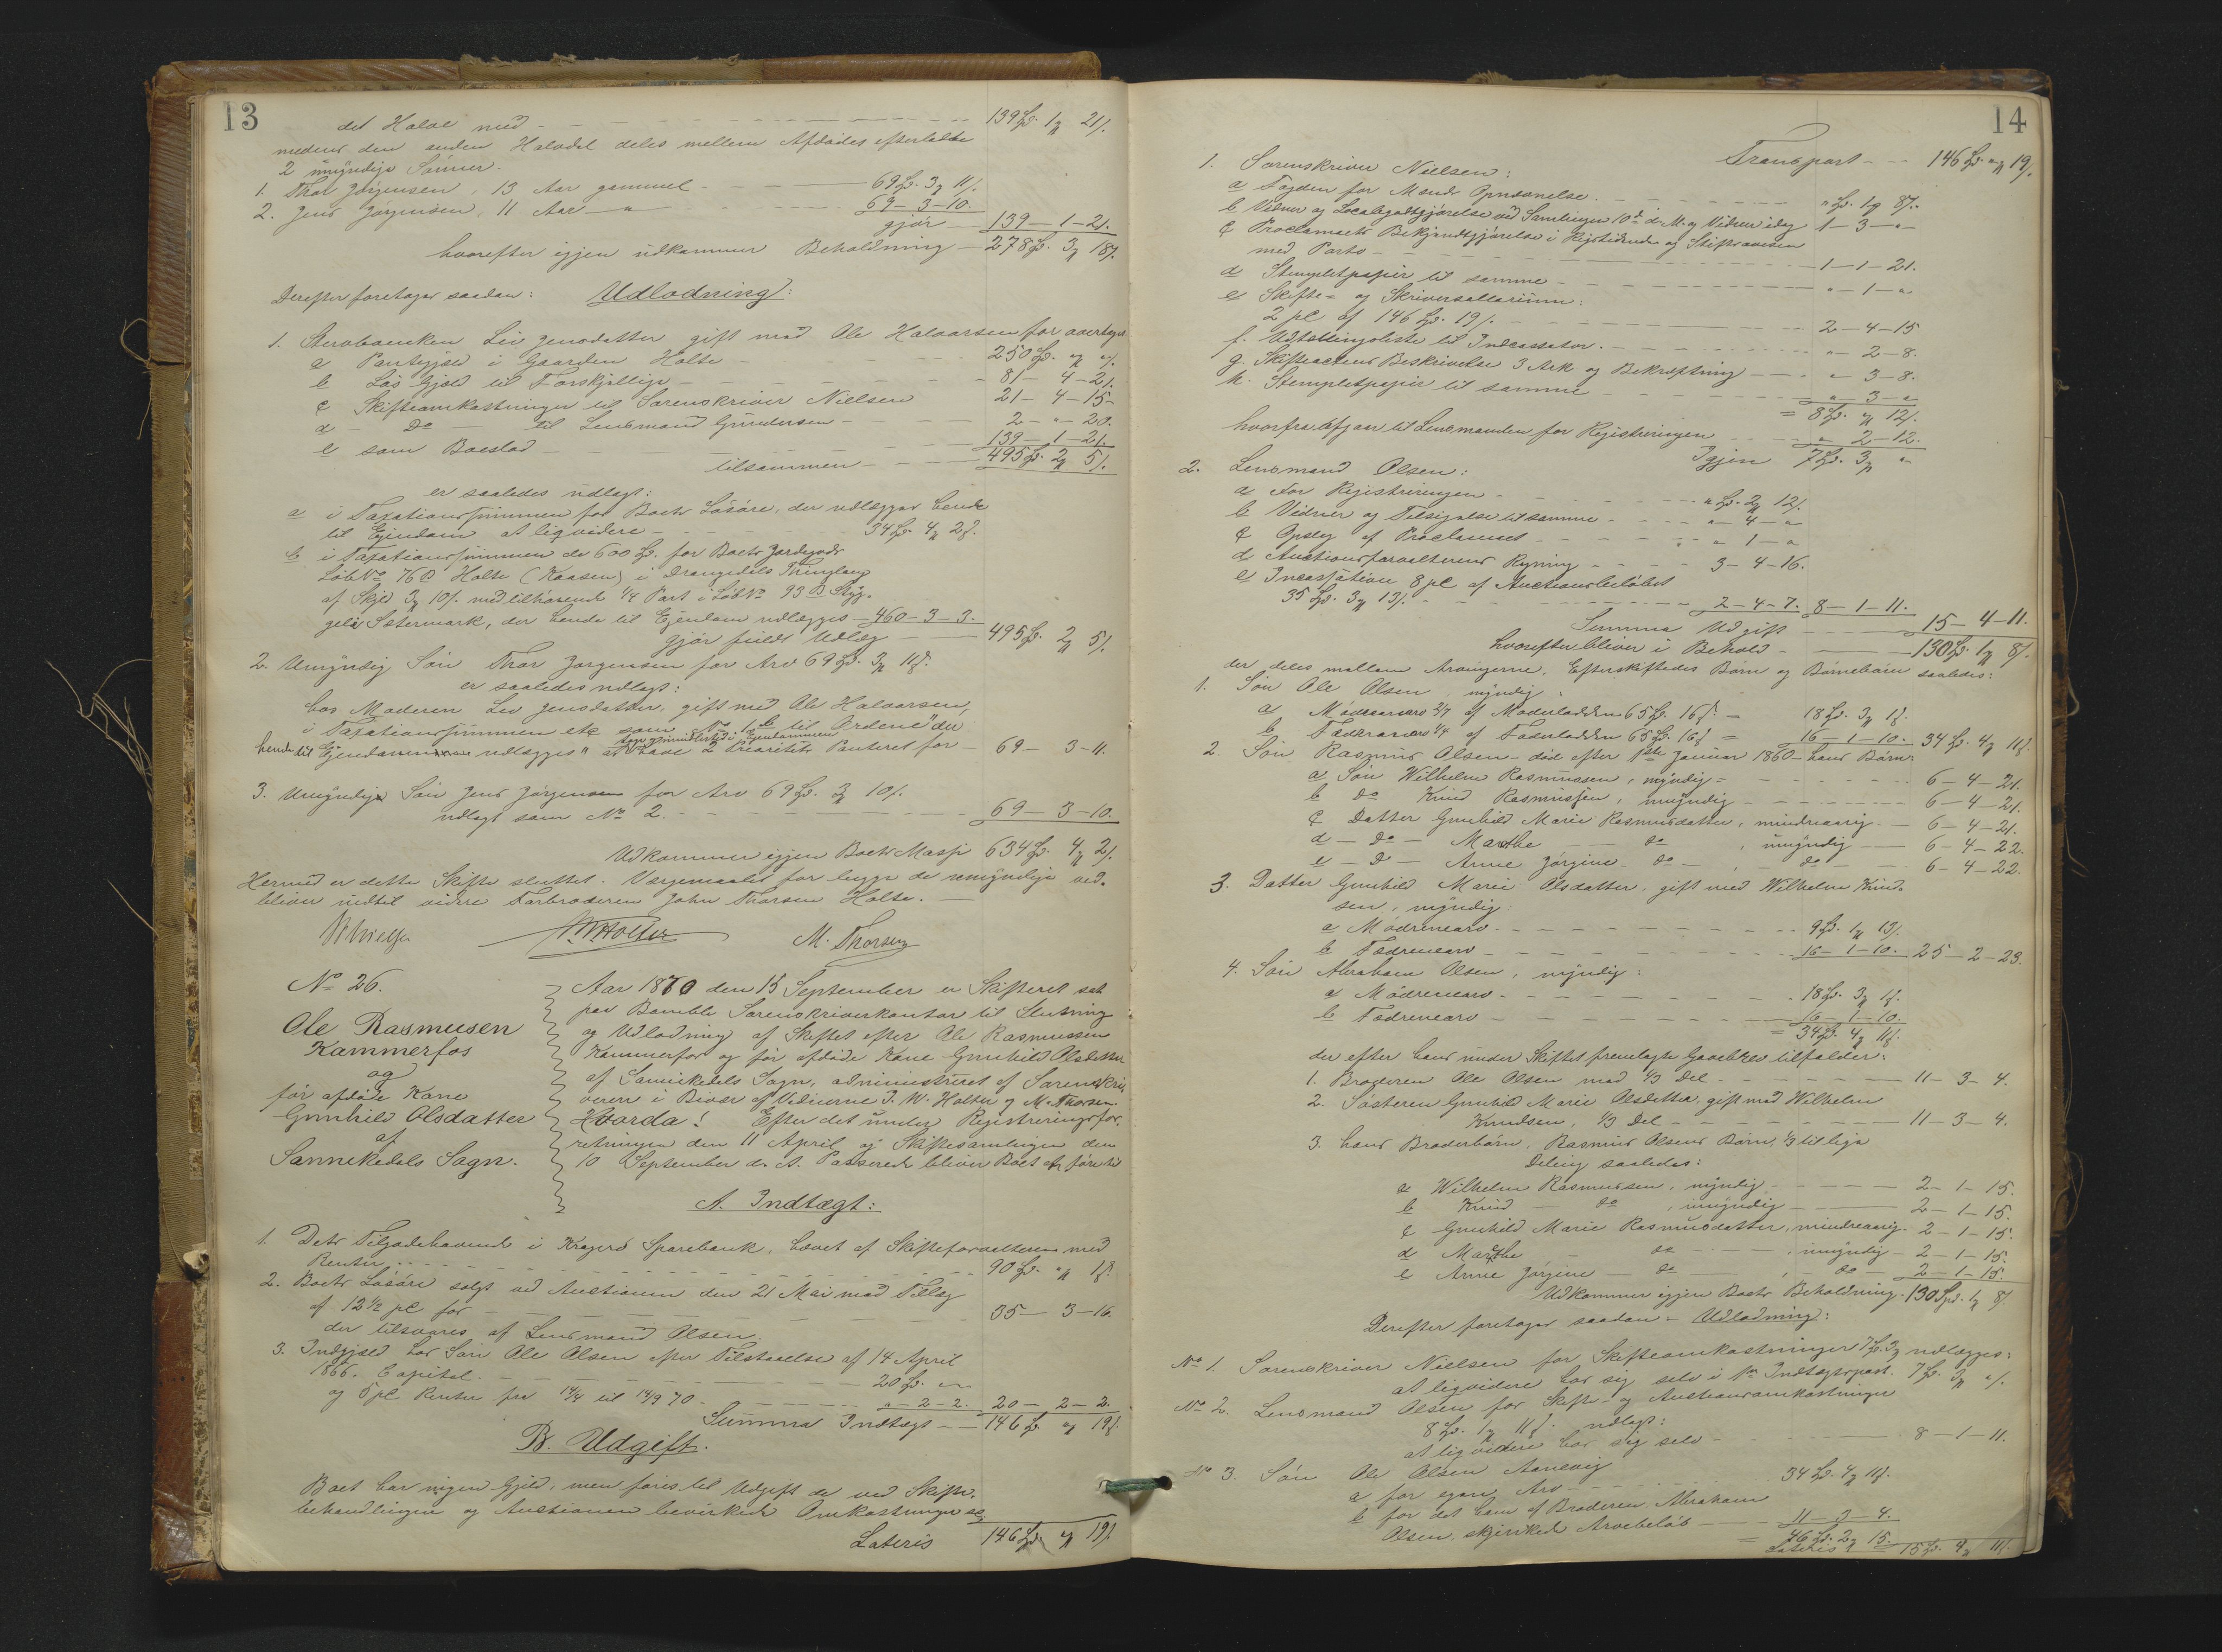 13
det Halve med - - - 139 Spd. 1 ₰ 21 ß.
medens den anden Halvdel deles mellem Afdødes efterladte
2 umyndige Sønner.
1. Thor Jørgensen, 13 Aar gammel - - - 69 Spd. 3 ₰ 11 ß.
2. Jens Jørgensen, 11 Aar — " - - - 69 - 3 - 10.
gjør — 139 - 1 - 21.
hvorefter igjen udkommer Beholdning — 278 Spd. 3 ₰ 18 ß.
Derefter foretoges saadan: Udlodning:
1. Stervboenken Liv Jensdatter gift med Ole Halvorsen for overtagen
a Pantegjæld i Gaarden Holte - - - 250 Spd. " ₰ " ß.
b Løs Gjæld til Forskjellige - - - 81 - 4 - 21.
c Skifteomkostninger til Sorenskriver Nielsen 21 - 4 - 15.
d — Do — til Lensmand Gundersen - - - 2 - " - 20.
e som Boeslod - - - 139 - 1 - 21.
tilsammen - - - 495 Spd. 2 ₰ 5 ß.
er saaledes udlagt:
a i Taxationssummen for Boets Løsøre, der udlægges hende
til Ejendom at liqvidere - - - 34 Spd. 4 ₰ 2 ß.
b i Taxationssummen de 600 Spd. for Boets Jordegods
Løb No 76 c Holte (Kaasen) i Drangedals Thinglaug
af Skyld 3 ₰ 10 ß. med tilhørende 1/4 Part i Løb No 93 B Styg-
gelia Sætermark, der hende til Ejendom udlægges — 460 - 3 - 3.
gjør fuldt Udlæg — 495 Spd. 2 ₰ 5 ß.
2. Umyndig Søn Thor Jørgensen for Arv 69 Spd. 3 ₰ 11 ß.
er saaledes udlagt:
hos Moderen Liv Jensdatter, gift med Ole Halvorsen,
i Taxationssummen etc som No 1 b til Ordene "der
hende til Ejendom udlægges" at have 2 Prioritets Panteret for — 69 - 3 - 11.
3. Umyndige Søn Jens Jørgensen for Arv 69 Spd. 3 ₰ 10 ß.
udlagt som No 2. - - - 69 - 3 - 10.
Udkommer igjen Boets Masse 634 Spd. 4 ₰ 2 ß.
Hermed er dette Skifte sluttet. Værgemaalet for begge de umyndige ved-
bliver indtil videre Farbroderen John Thorsen Holte. —
Nielsen J W Holter M. Thorsen
No 26.
Ole Rasmusen
Kammerfos
og
før afdøde Kone
Gunhild Olsdatter
af
Sannikedals Sogn.
Aar 1870 den 15 September er Skifteret sat
paa Bamble Sorenskriverkontor til Slutning
og Udlodning af Skiftet efter Ole Rasmussen
Kammerfos og før afdøde Kone Gunhild Olsdatter
af Sannikedals Sogn, administreret af Sorenskri-
veren i Bivær af Vidnerne J. W. Holter og M. Thorsen.
Hvorda! Efter det under Registreringsfor-
retningen den 11 April og Skiftesamlingen den
10 September d. A. Passerede bliver Boet at føre til
A. Indtægt:
1. Dets Tilgodehavende i Kragerø Sparebank, hævet af Skifteforvalteren med
Renter - - - 90 Spd. " ₰ 1 ß.
2. Boets Løsøre solgt ved Auctionen den 21 Mai med Tillæg
af 12 1/2 pC for - - - 35 - 3 - 16.
der tilsvares af Lensmand Olsen.
3. Indgjæld hos Søn Ole Olsen efter Tilstaaelse af 14 April
1866. Capital - - - 20 Spd. " "
og 5 pC Renter fra 14/4 til 14/9 70 - - - " - 2 - 2. 20 - 2 - 2.
Summa Indtægt - - 146 Spd. " ₰ 19 ß.
B. Udgift.
Boet har ingen Gjæld, men føres til Udgift de ved Skifte-
behandlingen og Auctionen bevirkede Omkostninger
Lateris 146 Spd. " ₰ 19 ß.
14
Transport - - 146 Spd. " ₰ 19 ß.
1. Sorenskriver Nielsen:
a Fogden for Mænds Opnævnelse - - - " Spd. 1 ₰ 8 ß.
b Vidner og Localgodtgjørelse ved Samlingen 10de d. M. og Vidner idag 1 - 3 - "
c Proclamaets Bekjendtgjørelse i Rigstidende og Stiftsavisen
med Porto - - - 1 - 1 - 21.
d Stempletpapir til samme - - - " - 1 - "
e Skifte- og Skriversallarium:
2 pC af 146 Spd. 19 ß. - - - 2 - 4 - 15
f. Udtællingsliste til Indcassator. - - - " - 2 - 8.
g. Skifteactens Beskrivelse 3 Ark og Bekræftning - - " - 3 - 8.
h. Stempletpapir til samme - - - " - 3 - "
= 8 Spd. " ₰ 12 ß.
hvorfra afgaar til Lensmanden for Registreringen - - " 2 - 12.
Igjen 7 Spd. 3 ₰ "
2. Lensmand Olsen:
a for Registreringen - - - " Spd. 2 ₰ 12 ß.
b Vidner og Tilsigelse til samme - - - " - 4 - "
c Opslag af Proclamaet - - - " - 1 - "
d Auctionsforvalterens Regning - - - 3 - 4 - 16.
e Incassation 8 pC af Auctionsbeløbet
35 Spd. 3 ₰ 13 ß. - - - 2 - 4 - 7. 8 - 1 - 11.
Summa Udgift - - - 15 - 4 - 11.
hvorefter bliver i Behold - - - 130 Spd. 1 ₰ 8 ß.
der deles mellem Arvingerne, Efterskiftedes Børn og Børnebørn saaledes:
1. Søn Ole Olsen, myndig:
a Mødrenearv 2/7 af Moderlodden 65 Spd. 16 ß. = 18 Spd. 3 ₰ 1 ß.
b Fædrenearv 1/4 af Faderlodden 65 Spd. 16 ß = 16 - 1 - 10. 34 Spd. 4 ₰ 11 ß.
2 Søn Rasmus Olsen - død efter 1ste Januar 1860 - hans Børn:
a Søn Wilhelm Rasmussen, myndig - - - 6 - 4 - 21.
b do Knud Rasmussen, umyndig - - - 6 - 4 - 21.
c Datter Gunhild Marie Rasmusdatter, mindreaarig - - 6 - 4 - 21.
d - do - Marthe — do —, umyndig - - 6 - 4 - 22.
e - d - Anne Jørgine - do —, do — 6 - 4 - 22.
3. Datter Gunhild Marie Olsdatter, gift med Wilhelm Knud-
sen, myndig:
a Mødrenearv - - - 9 Spd. 1 ₰ 13 ß.
b Fædrenearv - - - 16 - 1 - 10. 25 - 2 - 23.
4. Søn Abraham Olsen, myndig:
a Mødrenearv - - - 18 Spd. 3 ₰ 1 ß.
b Fædrenearv - - - 16 - 1 - 10.
= 34 Spd. 4 ₰ 11 ß.
der efter hans under Skiftet fremlagte Gavebrev tilfalder:
1. Broderen Ole Olsen med 1/3 Del - - - 11 - 3 - 4.
2. Søsteren Gunhild Marie Olsdatter, gift med Wilhelm
Knudsen, 1/3 Del - - - 11 - 3 - 4.
3. hans Broderbørn, Rasmus Olsens Børn, 1/3 til lige
Deling saaledes:
a Wilhelm Rasmussen, myndig - - - 2 - 1 - 15.
b Knud — do, umyndig - - - 2 - 1 - 15.
c Gunhild Marie Rasmusdatter, mindreaarig - 2 - 1 - 15.
d Marthe - do - , umyndig - 2 - 1 - 15.
e Anne Jørgine - do - , do - 2 - 1 - 15.
Udkommer igjen Boets Beholdning - 130 Spd. 1 ₰ 8 ß.
Derefter foretoges saadan: Udlodning:
No 1. Sorenskriver Nielsen for Skifteomkostninger 7 Spd. 3 ₰ udlægges:
at liqvidere hos sig selv i 1ste Indtægtspost. 7 Spd. 3 ₰ " ß.
No 2. Lensmand Olsen for Skifte- og Auctionsomkostninger
8 Spd. 1 ₰ 11 ß. udlagt:
at liqvidere hos sig selv - - - 8 - 1 - 11.
No 3. Søn Ole Olsen Aanevig
a for egen Arv - - - 34 Spd. 4 ₰ 11 ß.
b for det ham af Broderen Abraham
Olsen skjenkede Arvebeløb - - - 11 - 3 - 4.
= 46 Spd. 2 ₰ 15.
Lateris 15 Spd. 4 ₰ 11 ß.